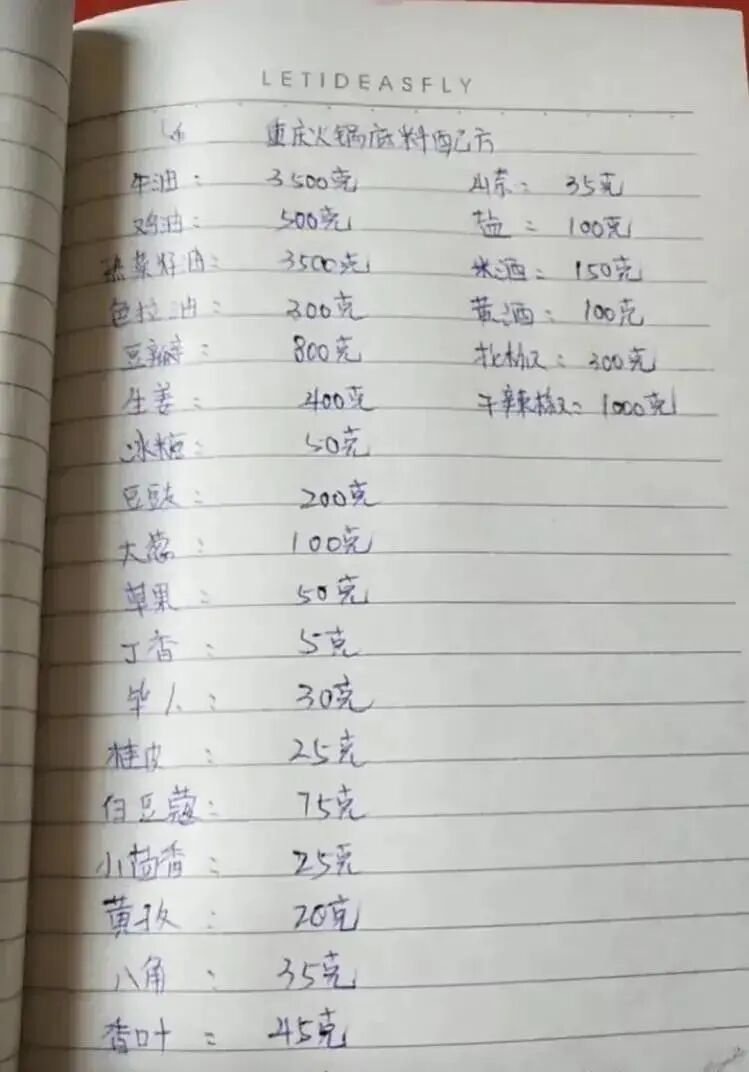 LETIDEASFLY
重庆火锅底料配方
牛油: 3500克 山柰: 35克
鸡油: 500克 盐: 100克
熟菜籽油: 3500克 米酒: 150克
色拉油: 300克 黄酒: 100克
豆瓣: 800克 花椒: 300克
生姜: 400克 干辣椒: 1000克
冰糖: 50克
豆豉: 200克
大葱: 100克
草果: 50克
丁香: 5克
毕人: 30克
桂皮: 25克
白豆蔻: 75克
小茴香: 25克
黄孜: 20克
八角: 35克
香叶: 45克